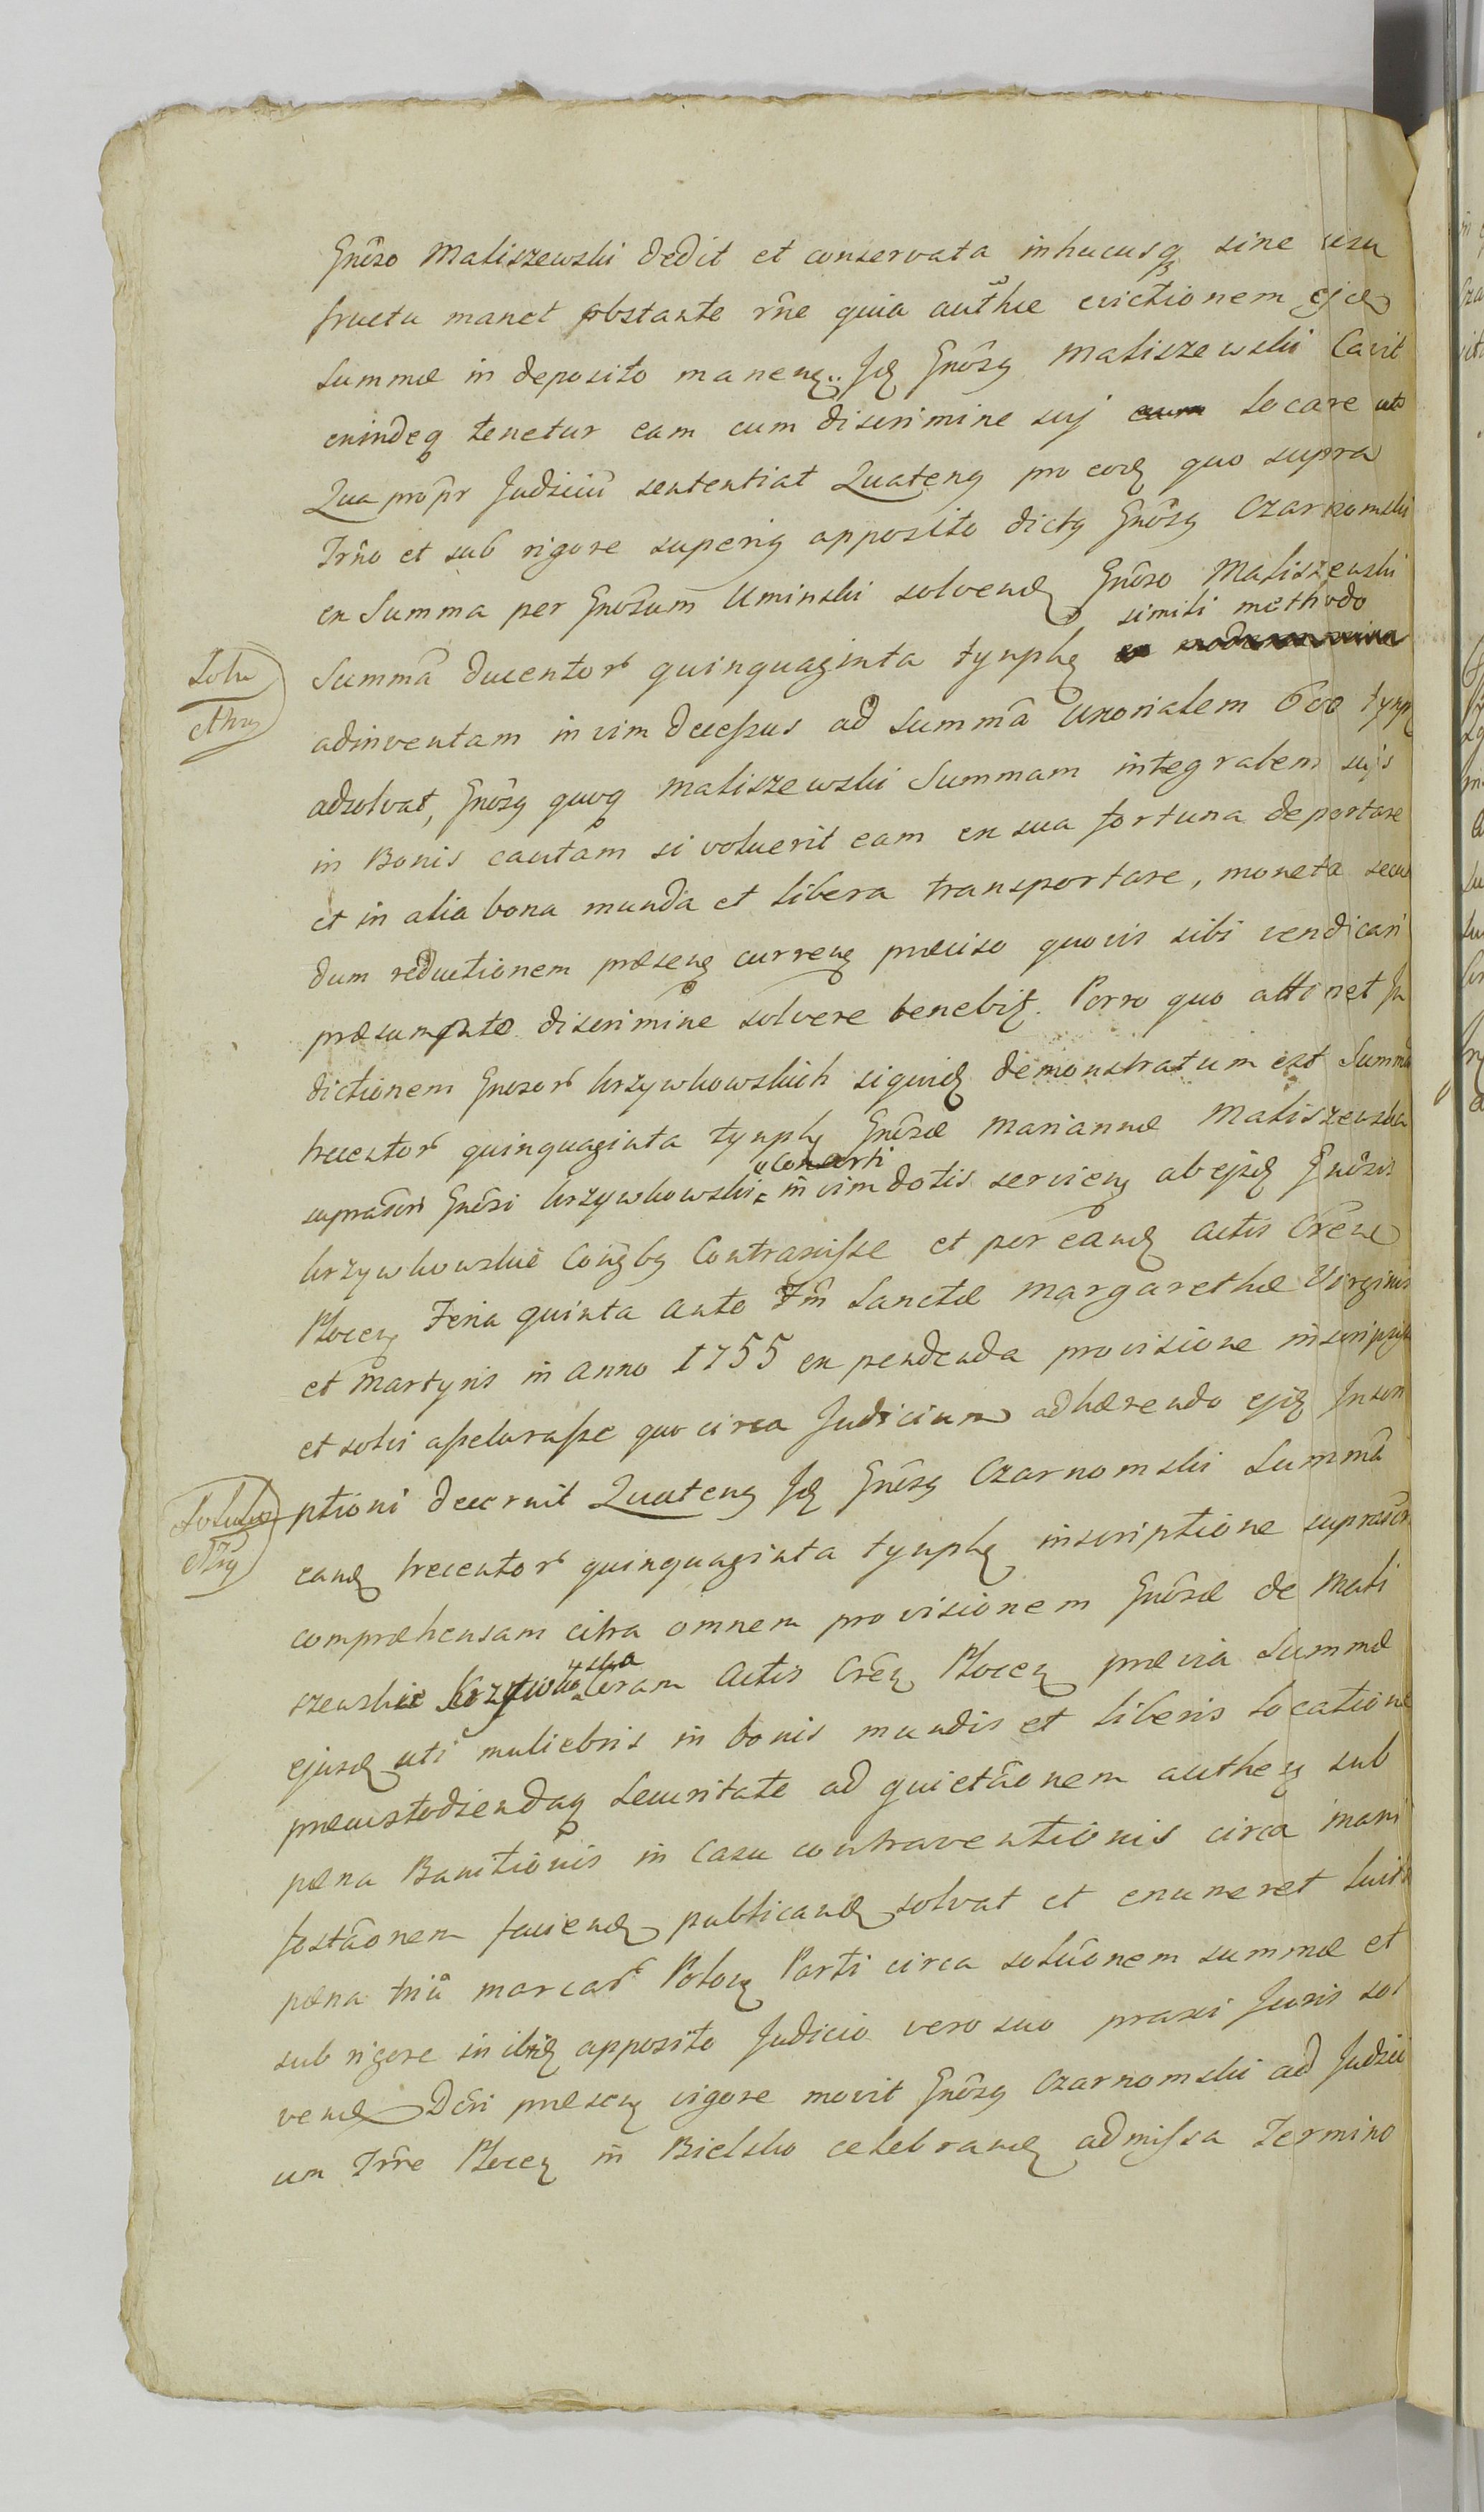 Gnôso Maliszewski dedit et conservata inhucusq sine usu
fructu manet obstante rñe quia authæ evictionem ejed
Summæ in deposito manenꝫ. Jd Gnôsꝫ Maliszewski Cavit
exindeq tenetur eam cum discrimine suj locare ut
Qua propr Judiciũ sententiat Quatenꝫ pro eod quo supra
Trño et sub rigore superiꝫ apposito dictꝫ Gnôsꝫ Czarnomski
ex Summa per Gnôsum Uminski solvend Gnôso Maliszewski
simili methodo
Summã ducentorʳ quinquaginta tynphꝫ
adinventam in vim decessus ad Summã Uxorialem 600 tynph
adsolvat, Gnôsꝫ quoq Maliszewski Summam integralem suis
in Bonis cautam si voluerit eam ex sua fortuna deportare
et in alia bona munda et libera transportare, moneta secun
dum reductionem præsenꝫ currenꝫ præciso quovis sibi vendicari
præsumpto discrimine solvere tenebiꝫ. Porro quo attinet Ju
dictionem Gnosorʳ Krzywkowskich siquid demonstratum est Summã
trecentorʳ quinquaginta tynphꝫ Gnôsæ Mariannæ Maliszewska
consorti
suprascri Gnôsi Krzywkowski in vim dotis servienꝫ ab ejsd Gnôsis
Krzywkowskie Conjꝫbꝫ Contraxisse et per eand actis Cren
Plocenꝫ Feria quinta ante Fm Sanctæ Margarethæ Virginis
et Martyris in Anno 1755 ex pendenda provisione inscripsisse
et solvi assecurasse quo circa Judicium adhærendo ejsd Inscri
ptioni decernit Quatenꝫ Jd Gnôsꝫ Czarnomski Summã
eand trecentorʳ quinquaginta tynphꝫ inscriptione suprascr
compræhensam citra omnem provisionem Gnôsæ de Mali
szewskie Krzywkowska coram Actis Crenꝫ Plocenꝫ prævia Summæ
ejusd uti muliebris in bonis mundis et liberis locatione
præcustodiendaq Securitate ad quietãonem authenꝫ sub
pæna Banitionis in Casu contraventionis circa mani
festãonem faciend publicand solvat et enumeret luita
pæna triũ marcarʳ Polonꝫ Parti circa solũonem summæ et
sub rigore in ibid apposito Judicio vero suo praxi Juris sol
vend Dcri præsenꝫ vigore movit Gnôsꝫ Czarnomski ad Judici
um Trre Plocenꝫ in Bielsko celebrand admissa Termino